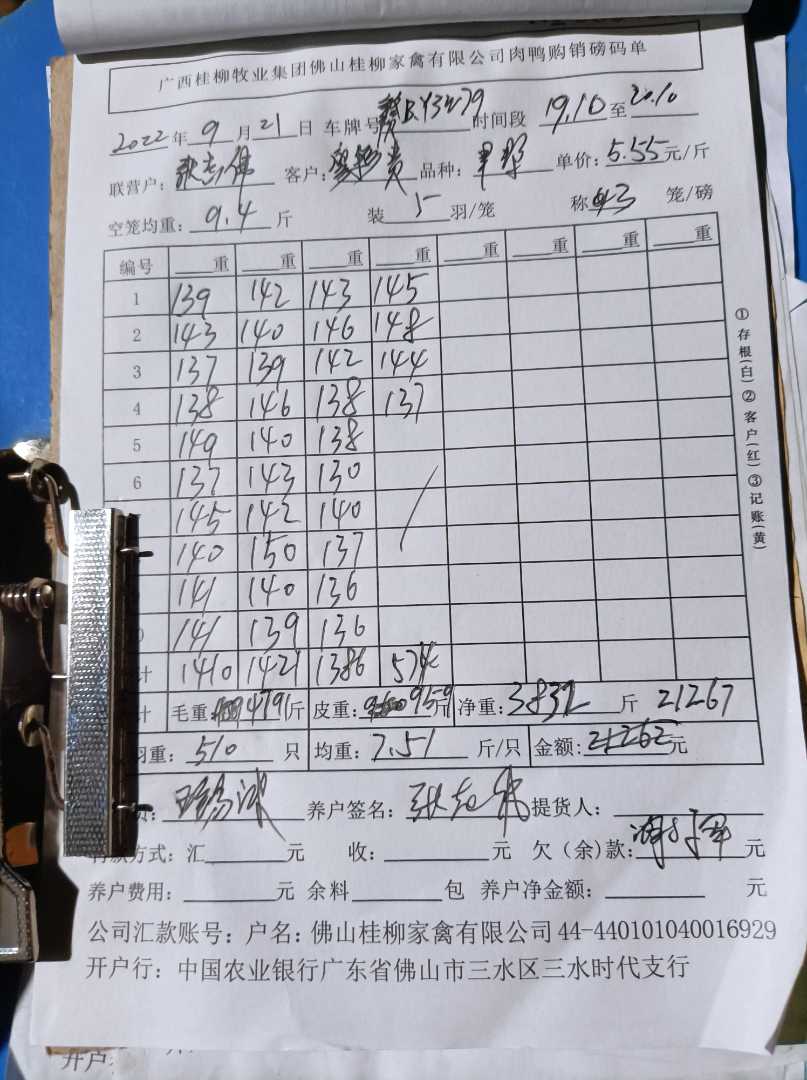 广西桂柳牧业集团佛山桂柳家禽有限公司肉鸭购销磅码单
2022年9月21日 车牌号 时间段 19.10至20.10
联营户: 客户: 品种: 单价:5.55元/斤
空笼均重:9.4斤 装5羽/笼 称 笼/磅
编号 重 重 重 重 重 重 重 重
1 139 142 143 145
2 143 140 146 148
3 137 139 142 144
4 138 146 138 137
5 149 140 138
6 137 143 130
145 142 140
140 150 137
141 140 136
141 139 136
计 1410 1421 1386 574
计 毛重:4791斤 皮重:959斤 净重:3832斤 21267
羽重:510只 均重:7.51斤/只 金额:21262元
养户签名: 提货人:
付款方式:汇 元 收: 元 欠(余)款: 元
养户费用: 元 余料 包 养户净金额: 元
公司汇款账号:户名:佛山桂柳家禽有限公司44-440101040016929
开户行:中国农业银行广东省佛山市三水区三水时代支行
①存根(白)②客户(红)③记账(黄)
开户